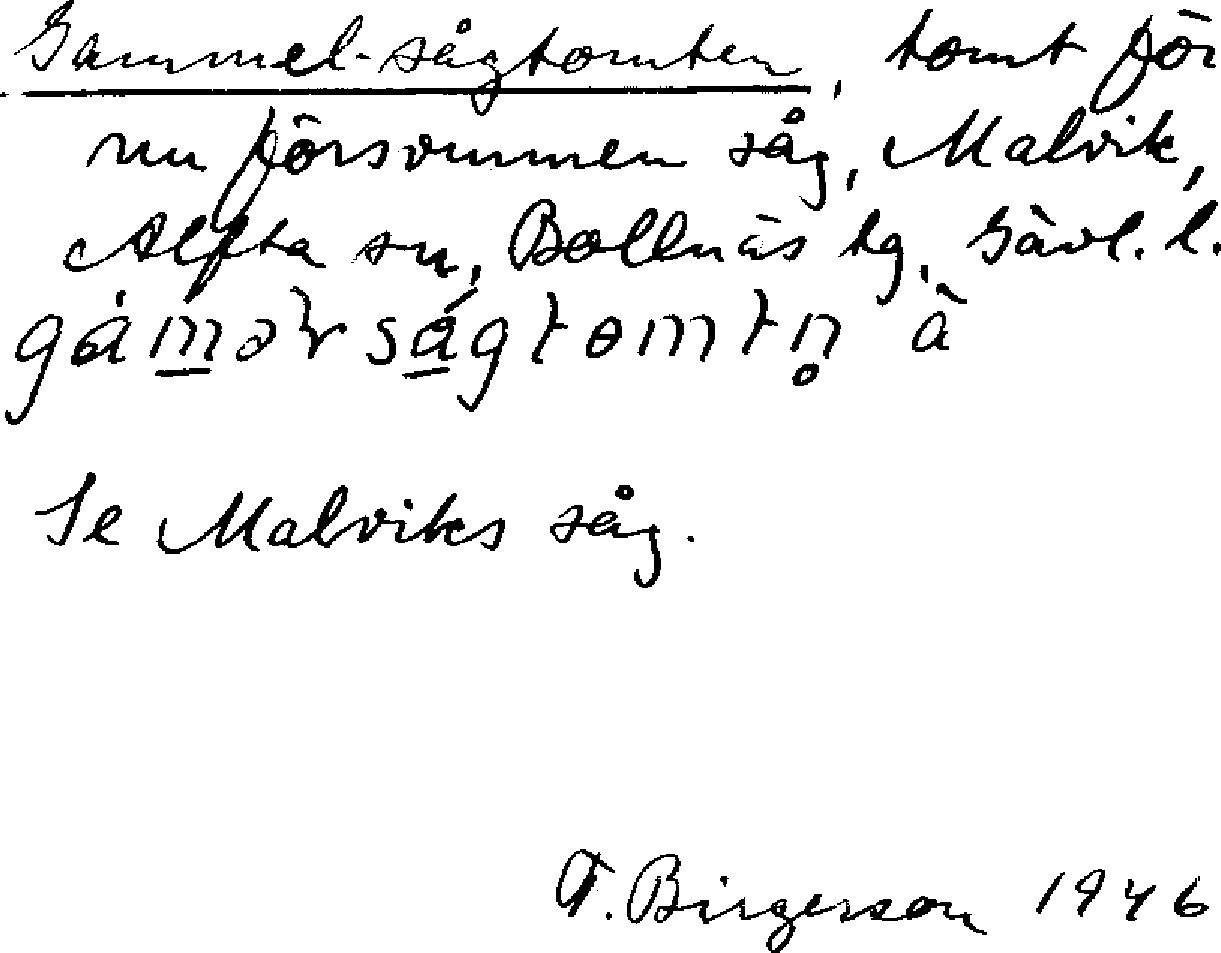 Gammel-sågtomten, tomt för
nu försvunnen såg, Malvik,
Alfta sn, Bollnäs tg, Gävl. l.
Se Malviks såg.
T. Birgerson 1946